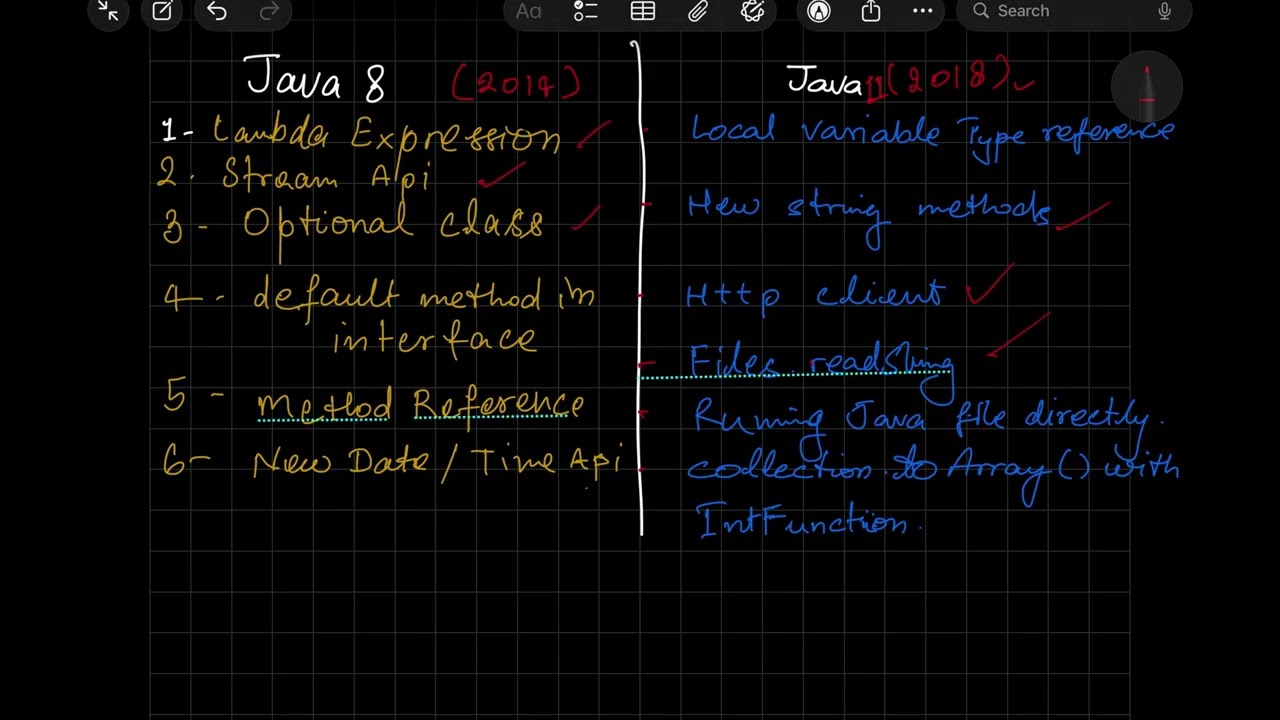 Aa
Search
Java 8 (2014)
1- Lambda Expression
2. Stream Api
3 - Optional class
4 - default method in
interface
5 - Method Reference
6- New Date / Time Api
Java 11 (2018)
Local variable Type reference
New string methods
Http client
Files readString
Runing Java file directly.
collection.to Array() with
IntFunction.